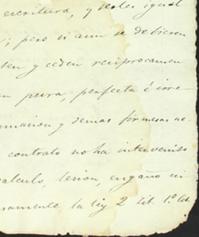 escritura, y serles igual
; pero si aun se debieren
ten y ceden reciprocamen
n pura, perfecta é irre-
rmacion y demas firmezas ne
contrato no ha intervenido
calculo, lesion, engaño ni
samente la ley 2 tit. 1º lib